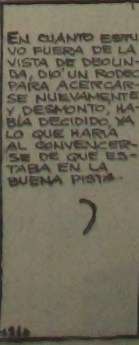 EN CUANTO ESTU
VO FUERA DE LA
VISTA DE DBOLIN-
DA, DIO UN RODEO
PARA ACERCAR-
SE NUEVAMENTE
Y DESMONTO, HA-
BÍA DECIDIDO YA
LO QUE HARIA
AL CONVENCER-
SE DE QUE ES-
TABA EN LA
BUENA PISTA.